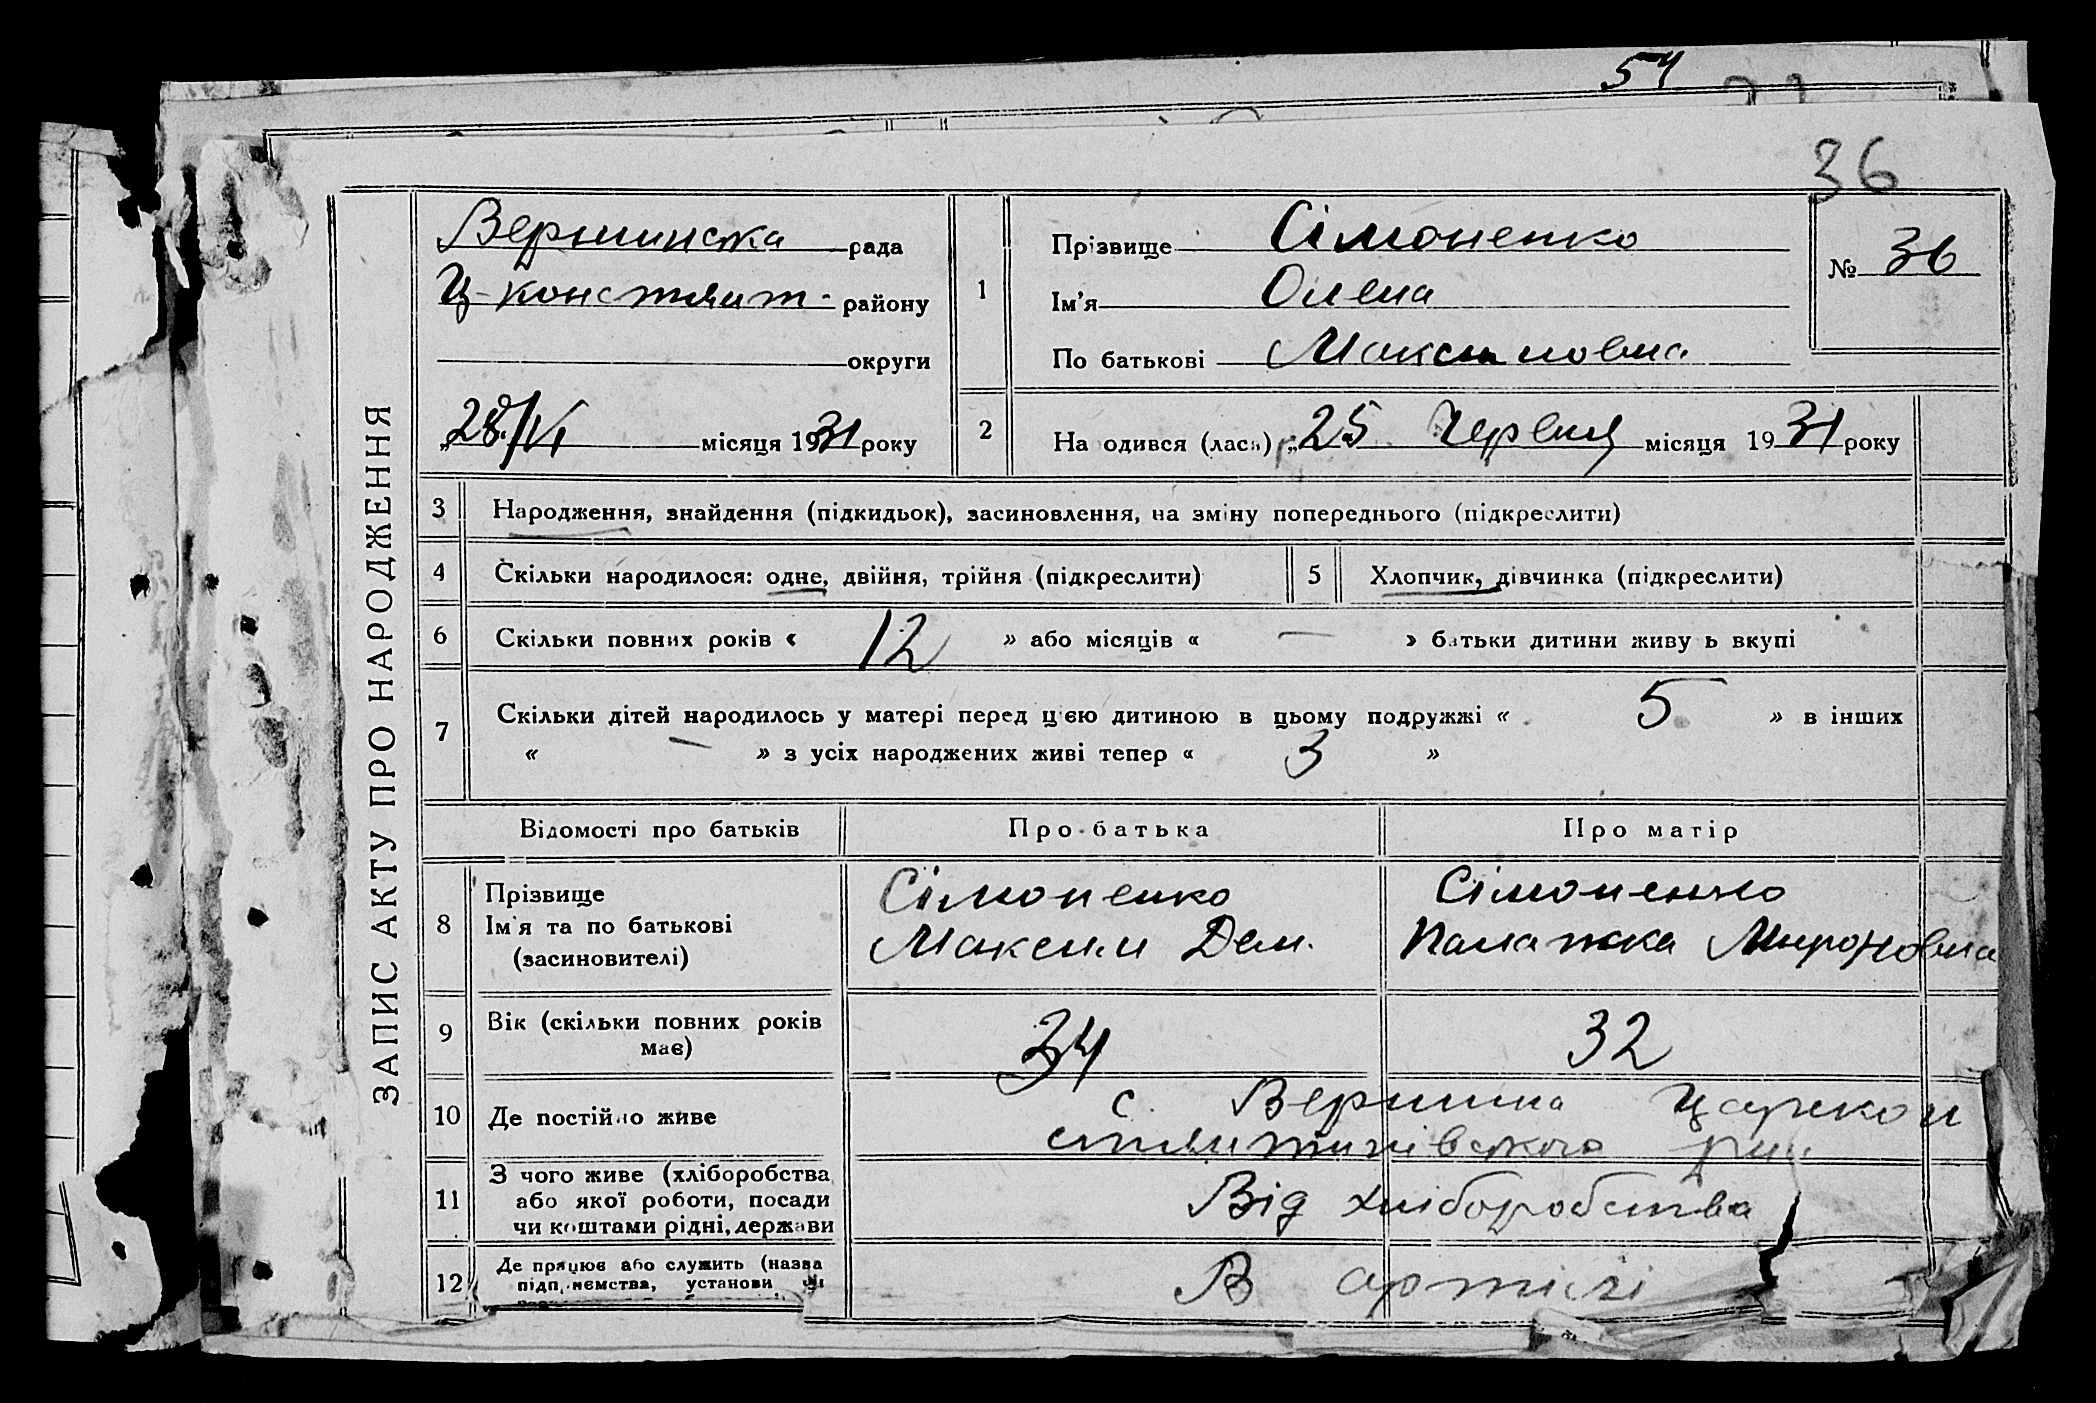 54
36
ЗАПИС АКТУ ПРО НАРОДЖЕННЯ
Вершинська рада
Ц-констянт- району
округи
„28/VI місяця 1931 року
1
Прізвище Сімоненко
Ім'я Олена
По батькові Максимовна
№ 36
2
На одився (лась) „25 Червня місяця 1931 року
3 Народження, знайдення (підкидьок), засиновлення, на зміну попереднього (підкреслити)
4 Скільки народилося: одне, двійня, трійня (підкреслити)
5 Хлопчик, дівчинка (підкреслити)
6 Скільки повних років « 12 » або місяців « — » батьки дитини живу ь вкупі
7 Скільки дітей народилось у матері перед цією дитиною в цьому подружжі « 5 » в інших
« — » з усіх народжених живі тепер « 3 »
Відомості про батьків Про батька Про матір
8 Прізвище
Ім'я та по батькові
(засиновителі)
Сімоненко
Максим Дем.
Сімоненко
Палажка Мироновна
9 Вік (скільки повних років
має)
34 32
10 Де постійно живе
с. Вершина Царекон
стянтинівського
11 З чого живе (хліборобства
або якої роботи, посади
чи коштами рідні, держави
Від хліборобства
12 Де працює або служить (назва
підп.иємства, установи чи
В артілі